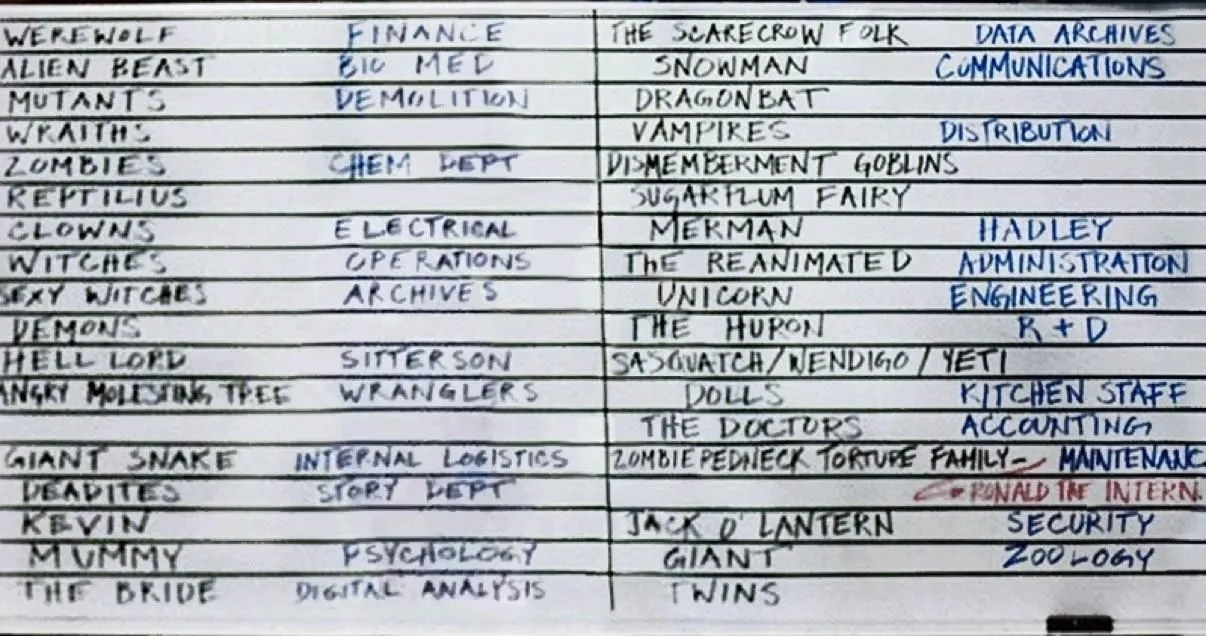 WEREWOLF FINANCE
ALIEN BEAST BIO MED
MUTANTS DEMOLITION
WRAITHS
ZOMBIES CHEM DEPT
REPTILIUS
CLOWNS ELECTRICAL
WITCHES OPERATIONS
SEXY WITCHES ARCHIVES
DEMONS
HELL LORD SITTERSON
ANGRY MOLESTING TREE WRANGLERS
GIANT SNAKE INTERNAL LOGISTICS
DEADITES STORY DEPT
KEVIN
MUMMY PSYCHOLOGY
THE BRIDE DIGITAL ANALYSIS
THE SCARECROW FOLK DATA ARCHIVES
SNOWMAN COMMUNICATIONS
DRAGONBAT
VAMPIRES DISTRIBUTION
DISMEMBERMENT GOBLINS
SUGARPLUM FAIRY
MERMAN HADLEY
THE REANIMATED ADMINISTRATION
UNICORN ENGINEERING
THE HURON R + D
SASQUATCH/WENDIGO/YETI
DOLLS KITCHEN STAFF
THE DOCTORS ACCOUNTING
ZOMBIE REDNECK TORTURE FAMILY- MAINTENANC
RONALD THE INTERN
JACK O' LANTERN SECURITY
GIANT ZOOLOGY
TWINS